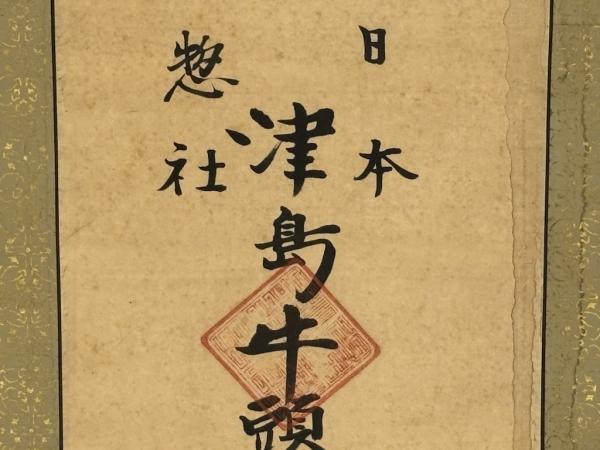 日本
津島牛頭
惣社